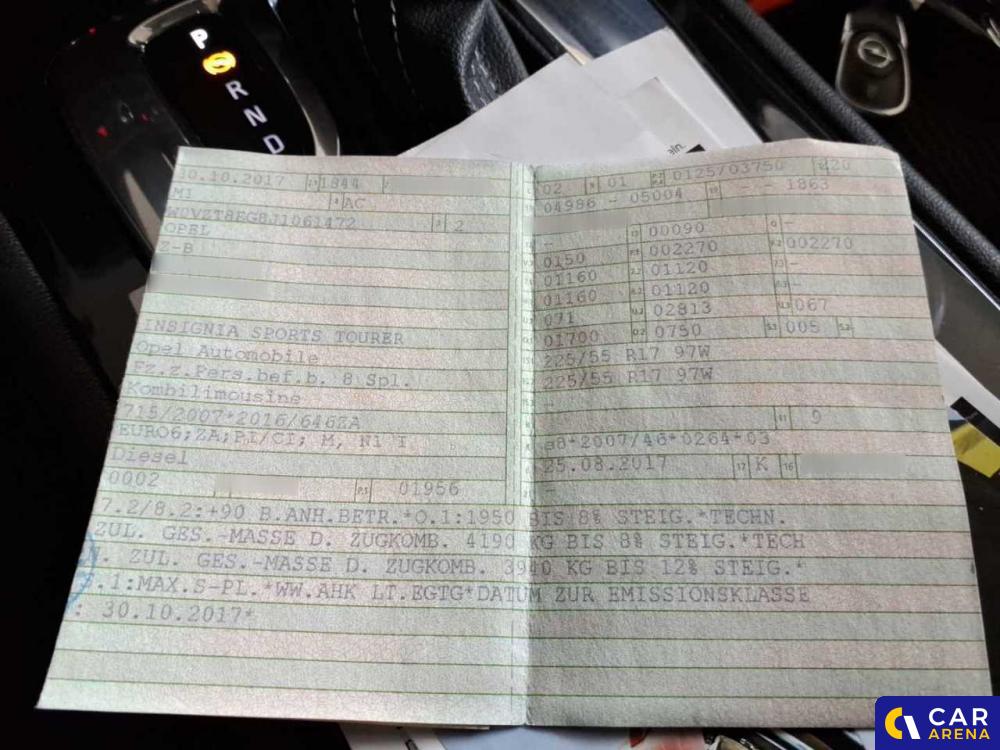 P
R
N
D
ain.
30.10.2017 1844
M1 AC
W0VZT8EG8J1061472 2
OPEL
Z-B
INSIGNIA SPORTS TOURER
Opel Automobile
Fz.z.Pers.bef.b. 8 Spl.
Kombilimousine
715/2007*2016/646ZA
EURO6;ZA;PI/CI; M, N1 I
Diesel
0002 P.3 01956
02 9 01 P.2 0125/03750 820
04986 - 05004 - - 1863
- 13 00090 Q -
0150 002270 002270
01160 01120 -
01160 01120 -
071 02813 067
01700 O.2 0750 S.1 005 S.2
225/55 R17 97W
225/55 R17 97W
- 9
e8*2007/46*0264*03
25.08.2017 17 K 16
-
7.2/8.2:+90 B.ANH.BETR.*O.1:1950 BIS 8% STEIG.*TECHN.
ZUL. GES.-MASSE D. ZUGKOMB. 4190 KG BIS 8% STEIG.*TECH
N. ZUL. GES.-MASSE D. ZUGKOMB. 3940 KG BIS 12% STEIG.*
.1:MAX.S-PL.*WW.AHK LT.EGTG*DATUM ZUR EMISSIONSKLASSE
: 30.10.2017*
CAR
ARENA